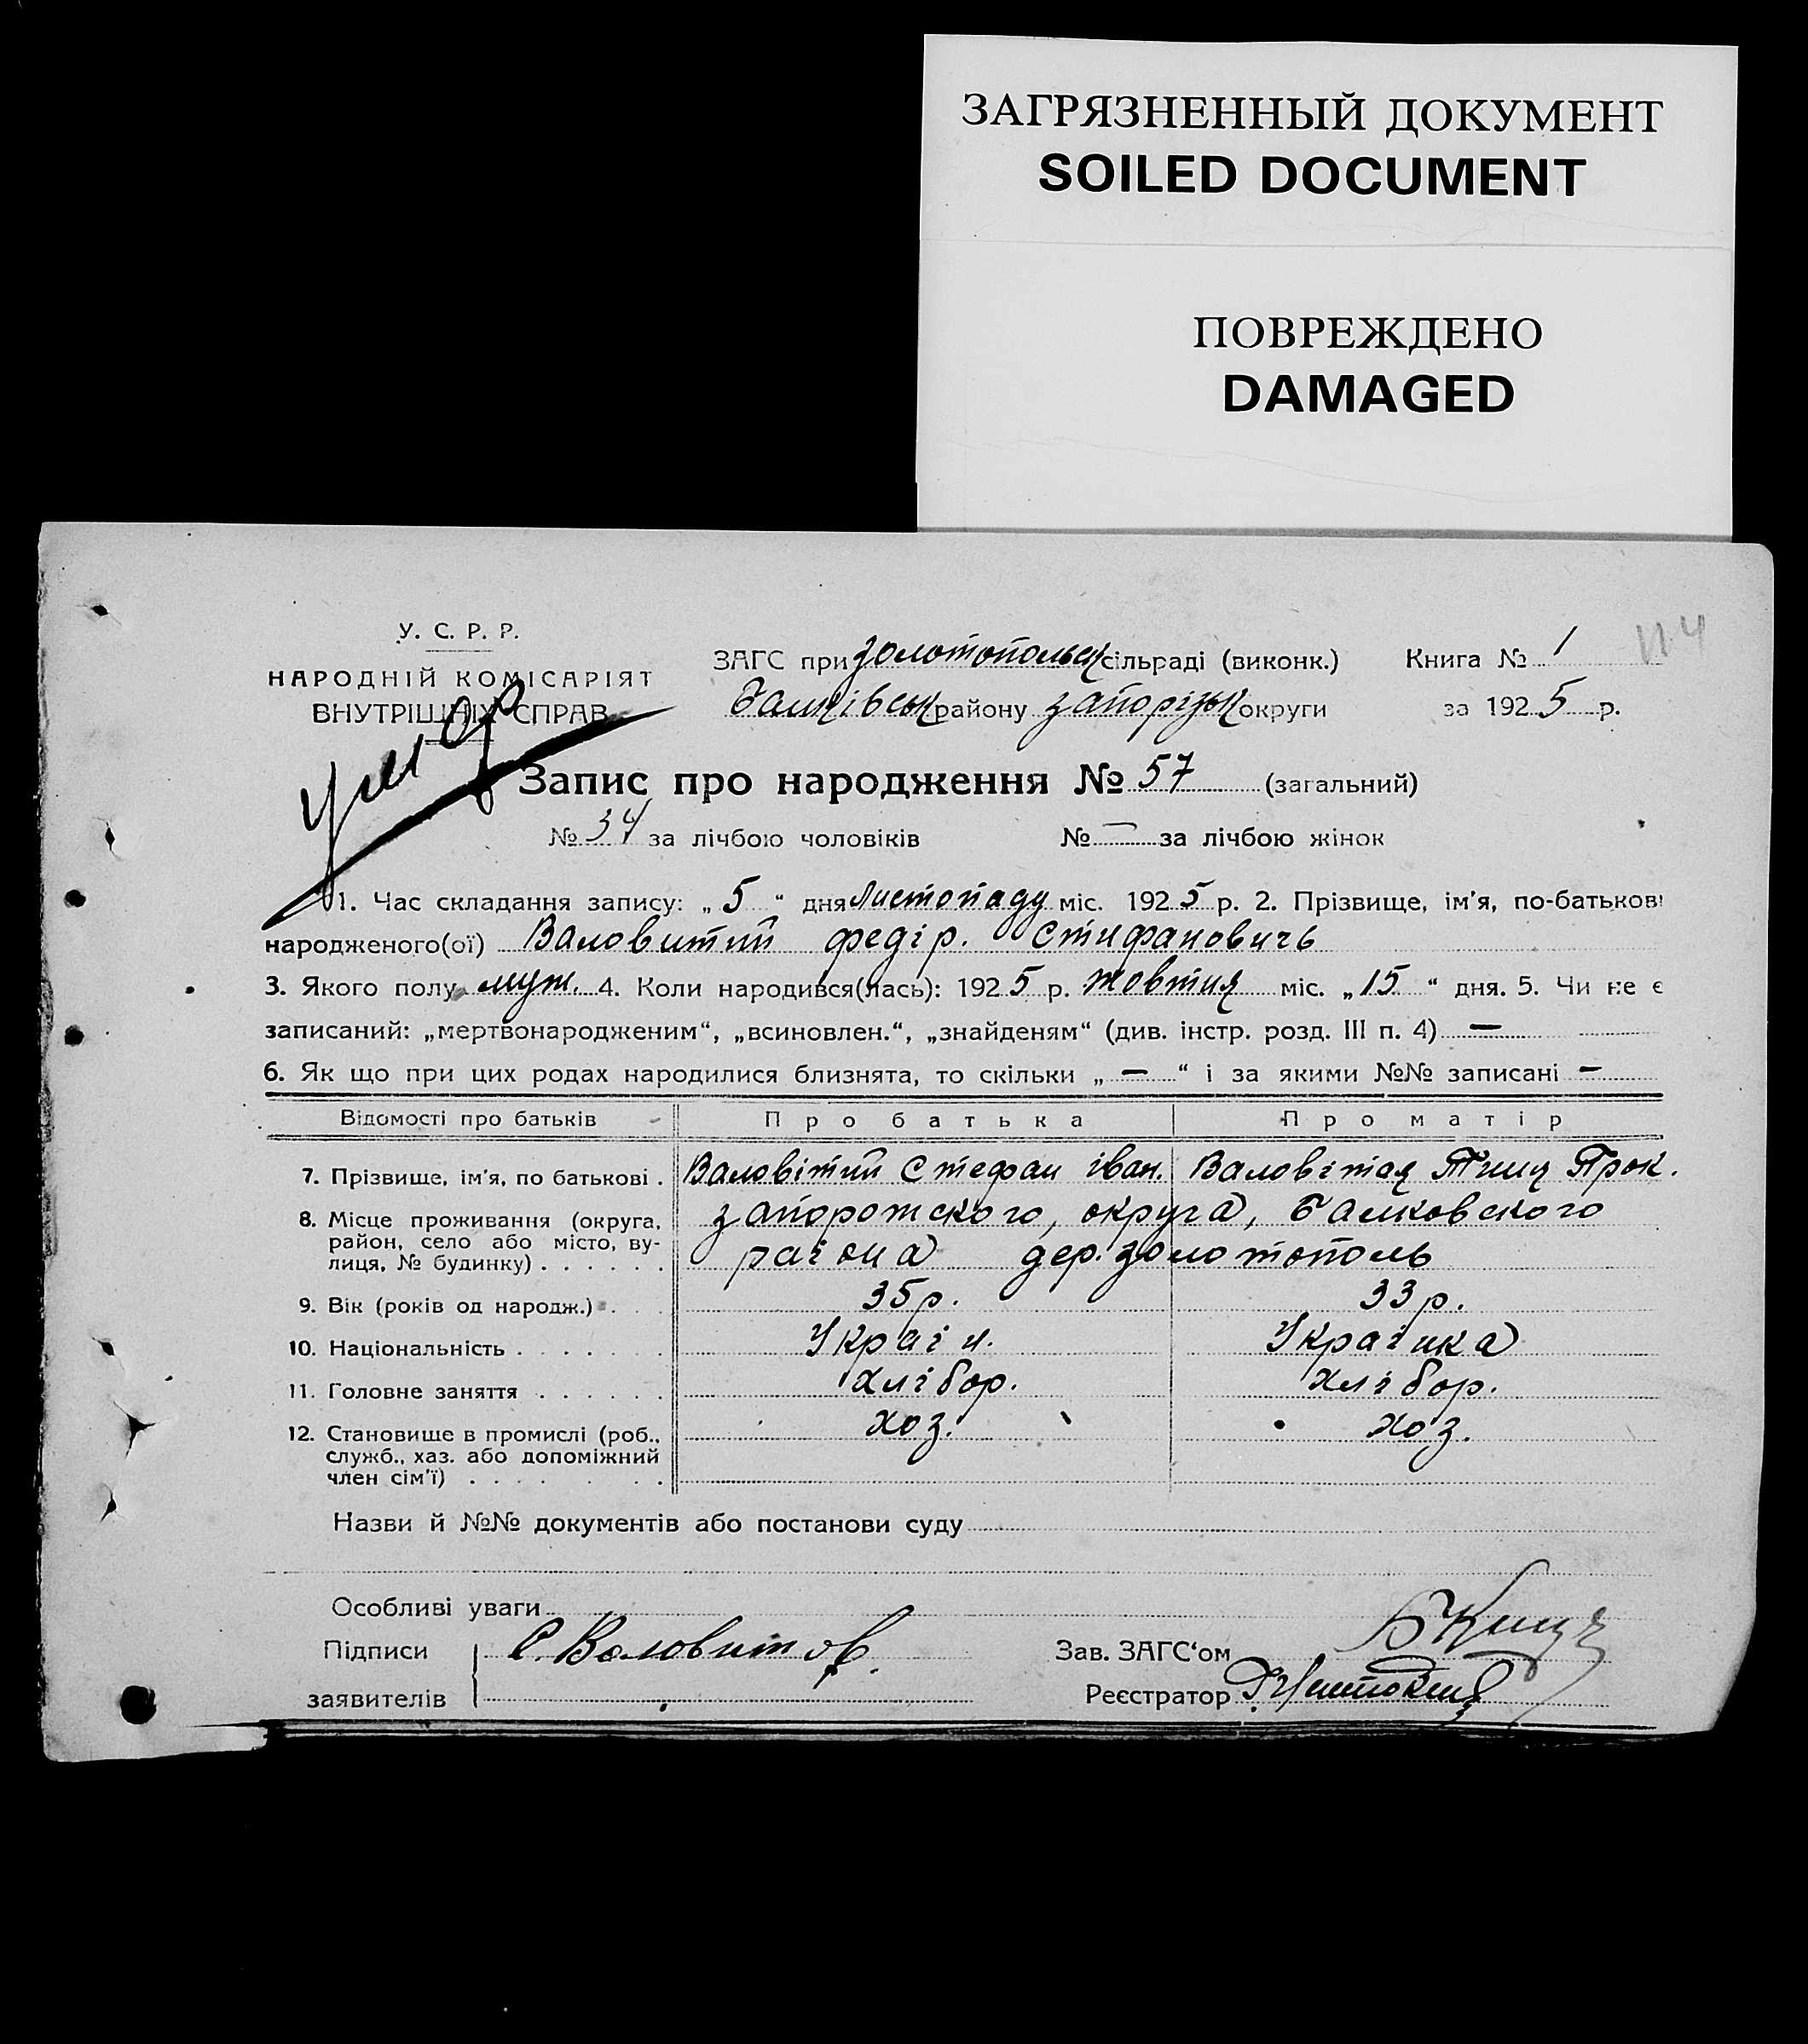 ЗАГРЯЗНЕННЫЙ ДОКУМЕНТ
SOILED DOCUMENT
ПОВРЕЖДЕНО
DAMAGED
У. С. Р. Р.
НАРОДНІЙ КОМІСАРІЯТ
ВНУТРІШНІХ СПРАВ
умер
ЗАГС при золотопольск сільраді (виконк.) Книга № 1
Балківськ району запорізьк округи за 1925 р.
Запис про народження № 57 (загальний)
№ 34 за лічбою чоловіків № — за лічбою жінок
1. Час складання запису: „ 5 “ дня Листопаду міс. 1925 р. 2. Прізвище, ім'я, по-батькові
народженого(ої) Валовитий федір. Стифановичь
3. Якого полу муж. 4. Коли народився(лась): 1925 р. жовтня міс. „ 15 “ дня. 5. Чи не є
записаний: „мертвонародженим“, „всиновлен.“, „знайденям“ (див. інстр. розд. III п. 4) —
6. Як що при цих родах народилися близнята, то скільки „ — “ і за якими №№ записані —
Відомості про батьків Про батька Про матір
7. Прізвище, ім'я, по батькові . Валовітий Стефан іван. Валовітая Прок.
8. Місце проживання (округа, запорожского, округа, Балковского
район, село або місто, ву-
лиця, № будинку) . . . . . . раіона дер. золотополь
9. Вік (років од народж.) . . . 35 р. 33 р.
10. Національність . . . . . . . Украін. Украінка
11. Головне заняття . . . . . . Хлібор. Хлібор.
12. Становище в промислі (роб., хоз. хоз.
служб., хаз. або допоміжний
член сім'ї) . . . . . . .
Назви й №№ документів або постанови суду
Особливі уваги
Підписи С. Валовитов. Зав. ЗАГС‘ом
заявителів Реєстратор